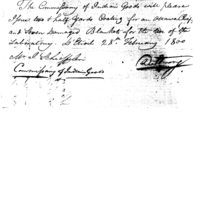 The Commissary of Indian Goods will please
issue two & half yards Coating for an
and Seven Damaged Blankets for the use of the
Laboratory. Detroit 28th February 1800
Mr.
Commissary of Indian Goods